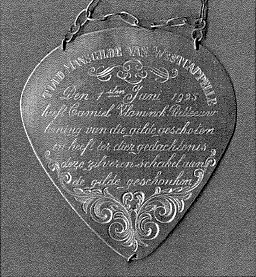 GILDE VAN WESTCAPPELLE
Den 1sten Juni 1925
heeft Camiel Vlaminck
koning van die gilde geschoten
en heeft ter dier gedachtenis
deze zilveren schakel aan
de gilde geschonken